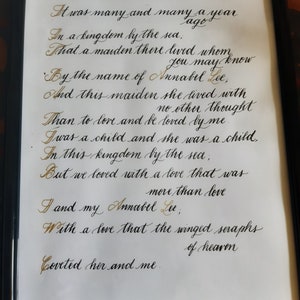 It was many and many a year
ago
In a kingdom by the sea,
That a maiden there lived whom
you may know
By the name of Annabel Lee,
And this maiden she lived with
no other thought
Than to love and be loved by me
I was a child and she was a child,
In this kingdom by the sea,
But we loved with a love that was
more than love
I and my Annabel Lee,
With a love that the winged seraphs
of heaven
Coveted her and me